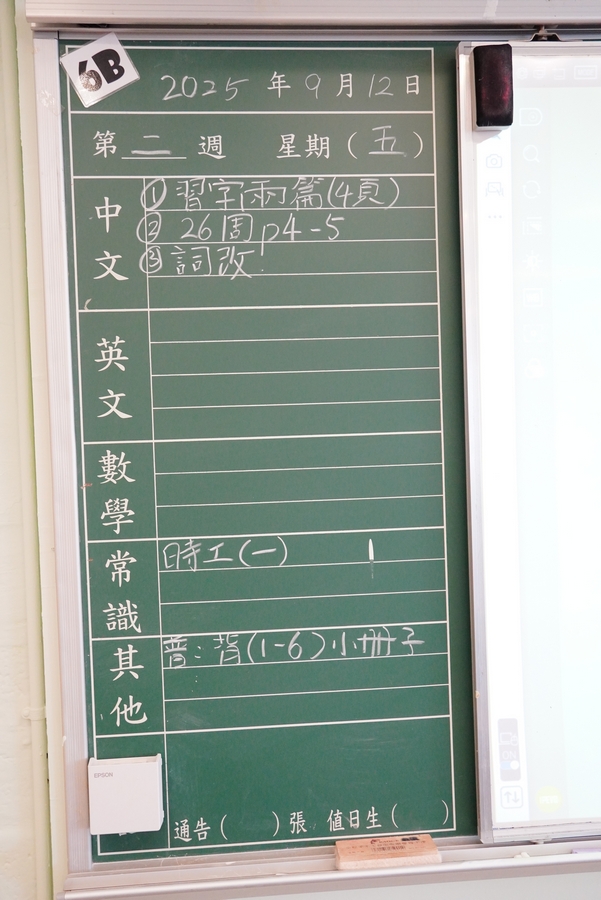 6B
2025年9月12日
第二週 星期(五)
中文
① 習字雨篇(4頁)
② 26周 p4-5
③ 詞改
英文
數學
常識
時工(一)
其他
普:背(1-6)小冊子
EPSON
通告( )張 值日生( )